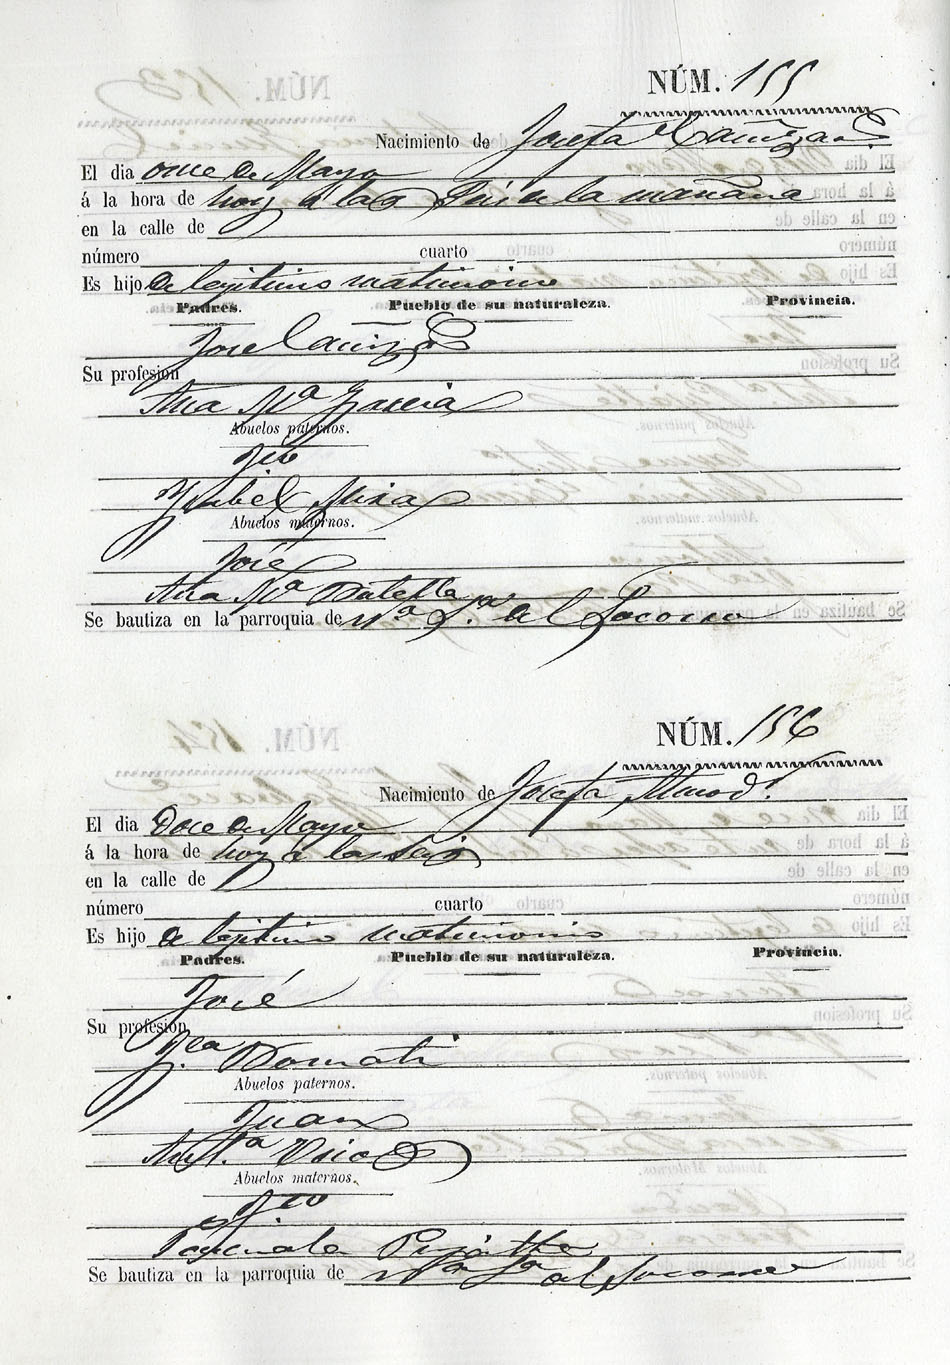 NÚM. 155
Nacimiento de Josefa Cañizares
El dia once de Mayo
á la hora de hoy á las Seis de la mañana
en la calle de
número cuarto
Es hijo de legitimo matrimonio
Padres. Pueblo de su naturaleza. Provincia.
Jose Cañizares
Su profesion
Ana Mª Garcia
Abuelos paternos.
Fco
Ysabel Mira
Abuelos maternos.
José
Ana Mª
Se bautiza en la parroquia de Nª Sª del Socorro
NÚM. 156
Nacimiento de Josefa
El dia Doce de Mayo
á la hora de hoy á las seis
en la calle de
número cuarto
Es hijo de legitimo matrimonio
Padres. Pueblo de su naturaleza. Provincia.
José
Su profesion
Fca
Abuelos paternos.
Juan
Antª
Abuelos maternos.
Fco
Pascuala
Se bautiza en la parroquia de Nª Sª del Socorro